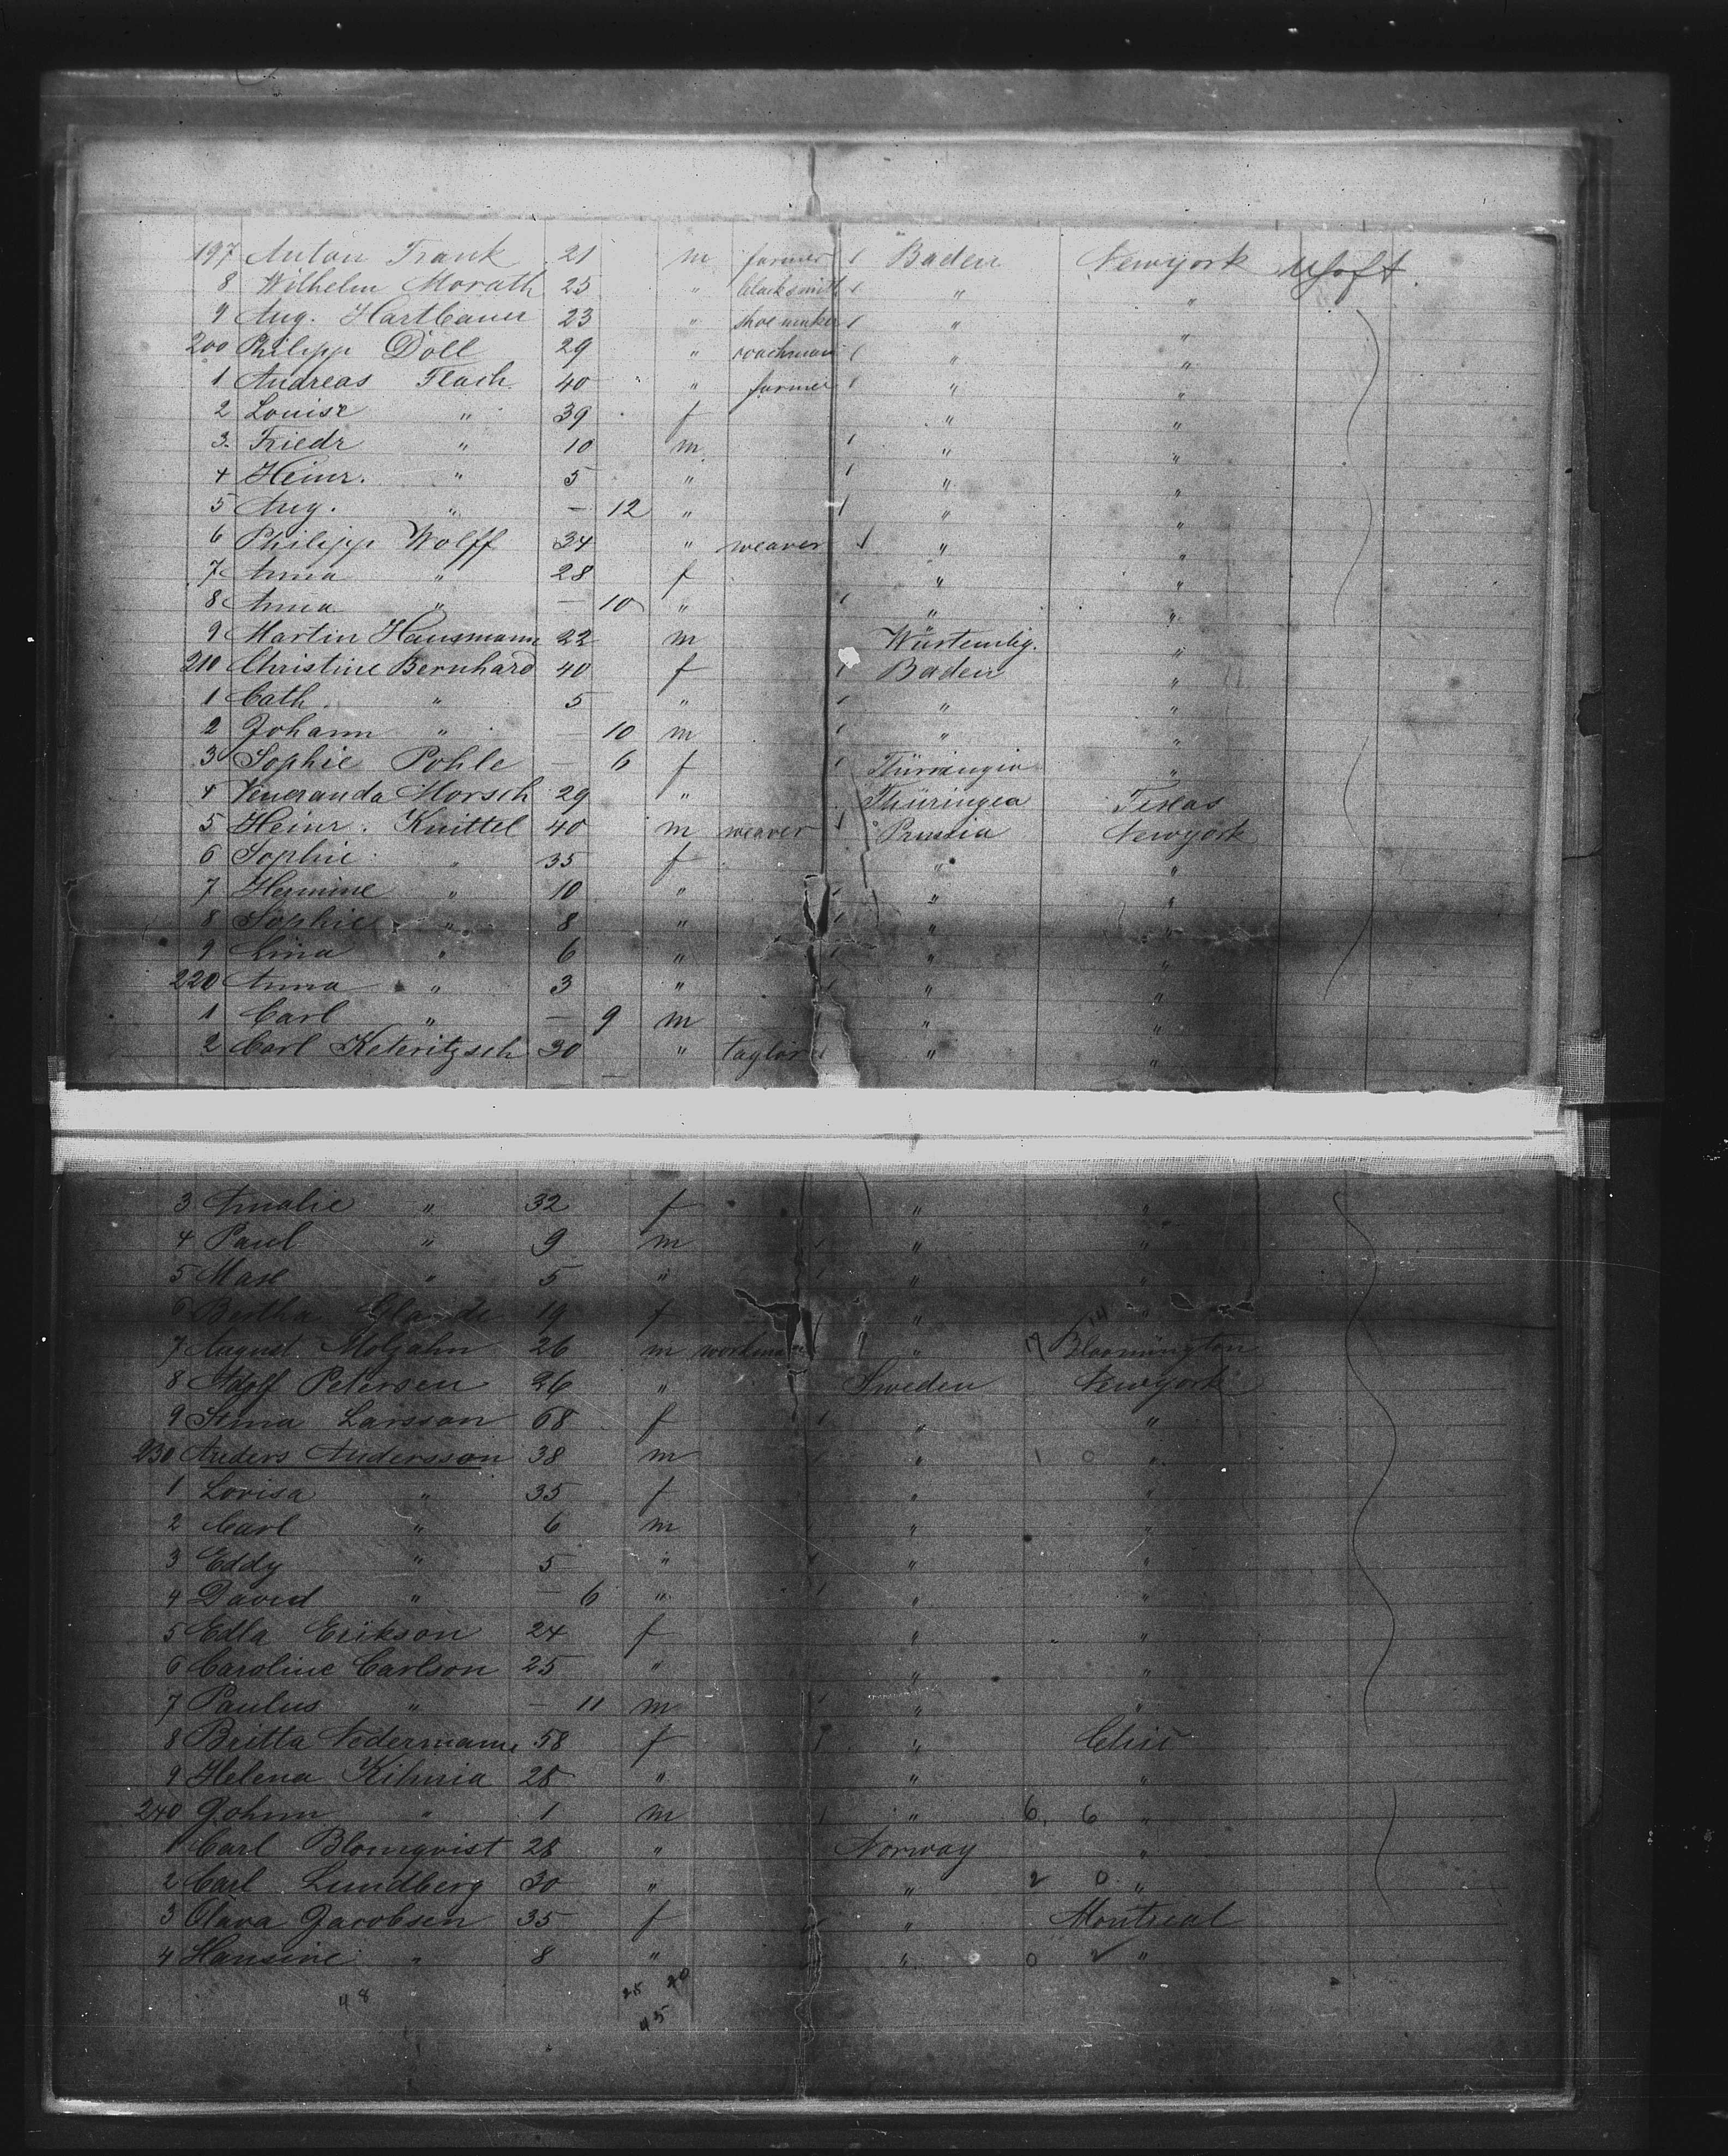 197 Anton Frank 21 m farmer / Baden Newyork
8 Wilhelm Morath 25 " blacksmith / " "
9 Aug. Hartbauer 23 " shoemaker / " "
200 Philipp Döll 29 " coachman / " "
1 Andreas Flach 40 " farmer / " "
2 Louise " 39 f " "
3 Friedr " 10 m / " "
4 Heinr. " 5 " / " "
5 Aug. " — 12 " / " "
6 Philipp Wolff 34 " weaver / " "
7 Anna " 28 f " "
8 Anna " — 10 " / " "
9 Martin Hausmann 22 m Würtembg. "
210 Christine Bernhard 40 f / Baden "
1 Cath. " 5 " / " "
2 Johann " — 10 m / " "
3 Sophie Pohle — 6 f / Thüringia "
4 Veneranda Morsch 29 " Thüringea Texas
5 Heinr. Knittel 40 m weaver / Prussia Newyork
6 Sophie " 35 f " "
7 Hermine " 10 " / " "
8 Sophie " 8 " / " "
9 Lina " 6 " / " "
220 Anna " 3 " / " "
1 Carl " — 9 m " "
2 Carl Keteritzsch 30 " taylor / " "
3 Amalie " 32 f " "
4 Paul " 9 m / " "
5 Max " 5 " / " "
6 Bertha 19 f " "
7 August Moljahn 26 m workman " Bloomington
8 Adolf Petersen 26 " Sweden Newyork
9 Stina Larsson 68 f / " "
230 Anders Andersson 38 m / " 1 0 "
1 Lovisa " 35 f " "
2 Carl " 6 m / " "
3 Eddy " 5 " / " "
4 David " — 6 " / " "
5 Edla Erikson 24 f " "
6 Caroline Carlson 25 " " "
7 Paulus " — 11 m / " "
8 Britta Nedermann 58 f / "
9 Helena Kihnia 28 " " "
240 Johnn " 1 m / " 6 6 "
1 Carl Blomqvist 28 " Norway "
2 Carl Lundberg 30 " " 2 0 "
3 Olava Jacobsen 35 f " Montreal
4 Hansine " 8 " " 0 2 "
48 25 20
45